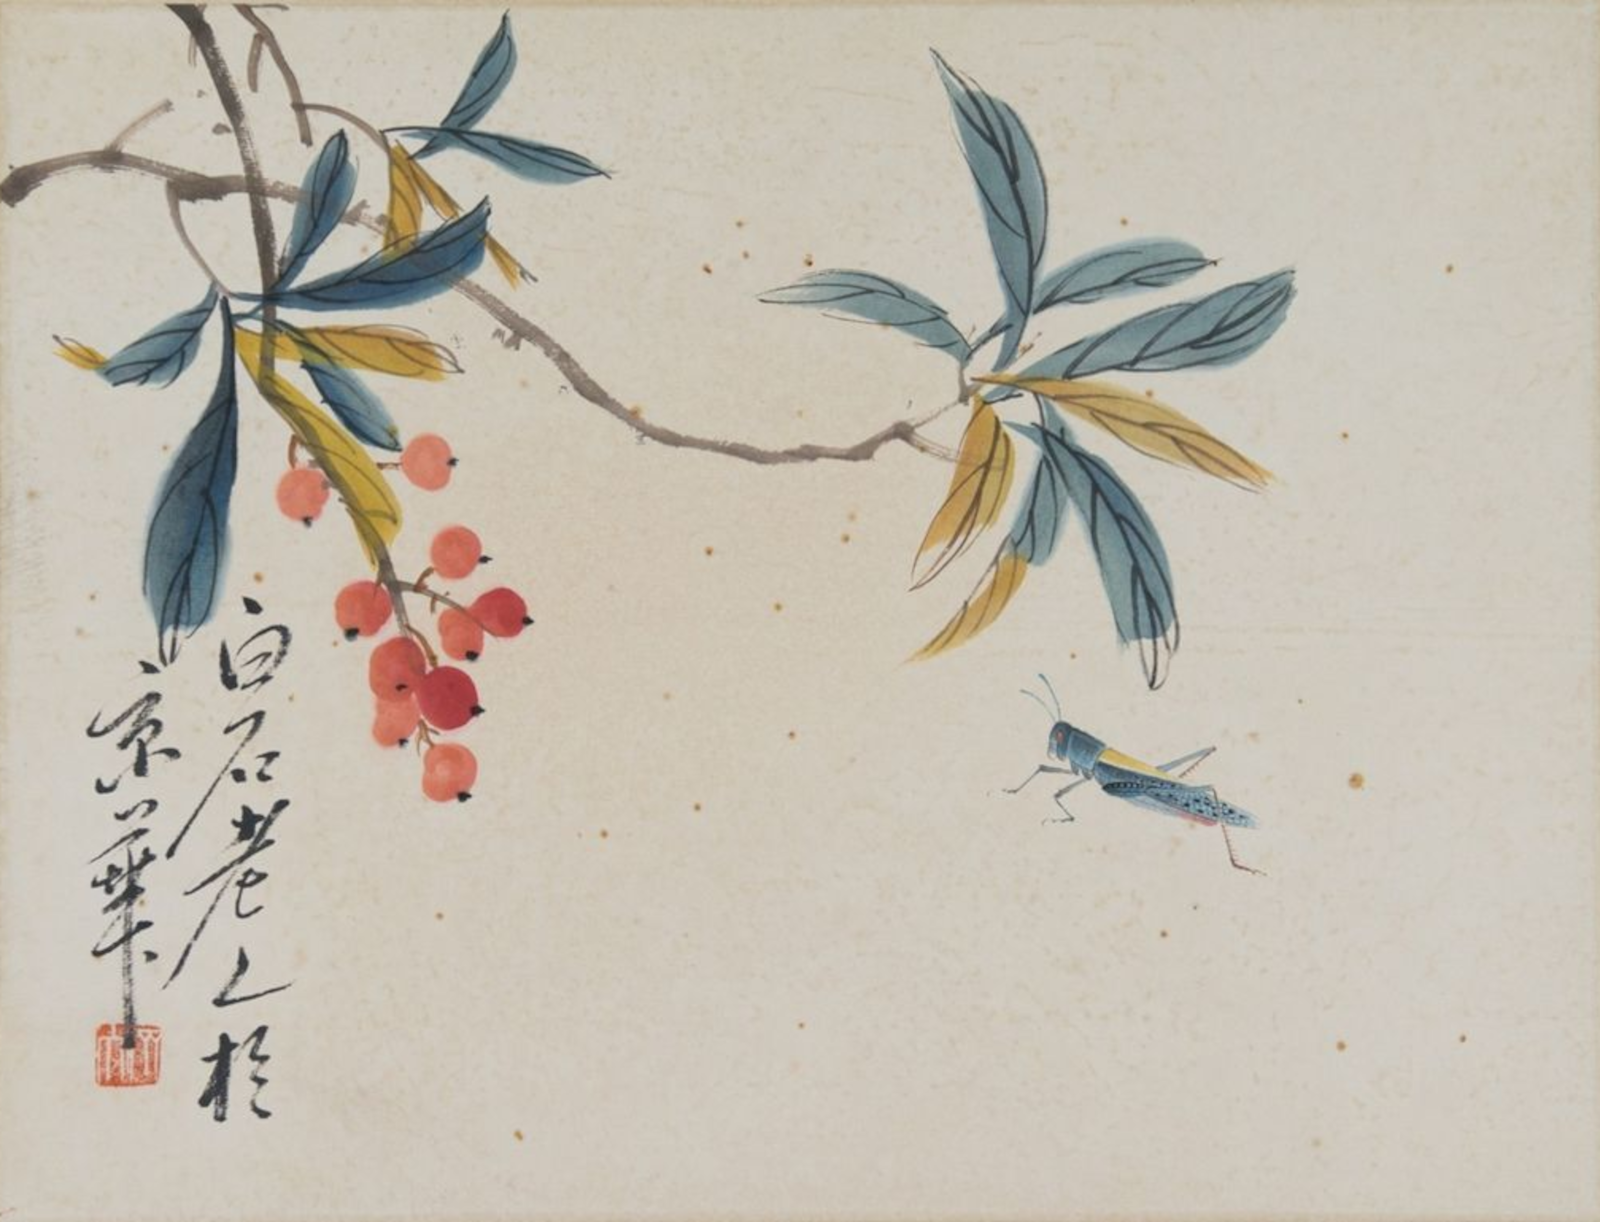 白石老人於
京華